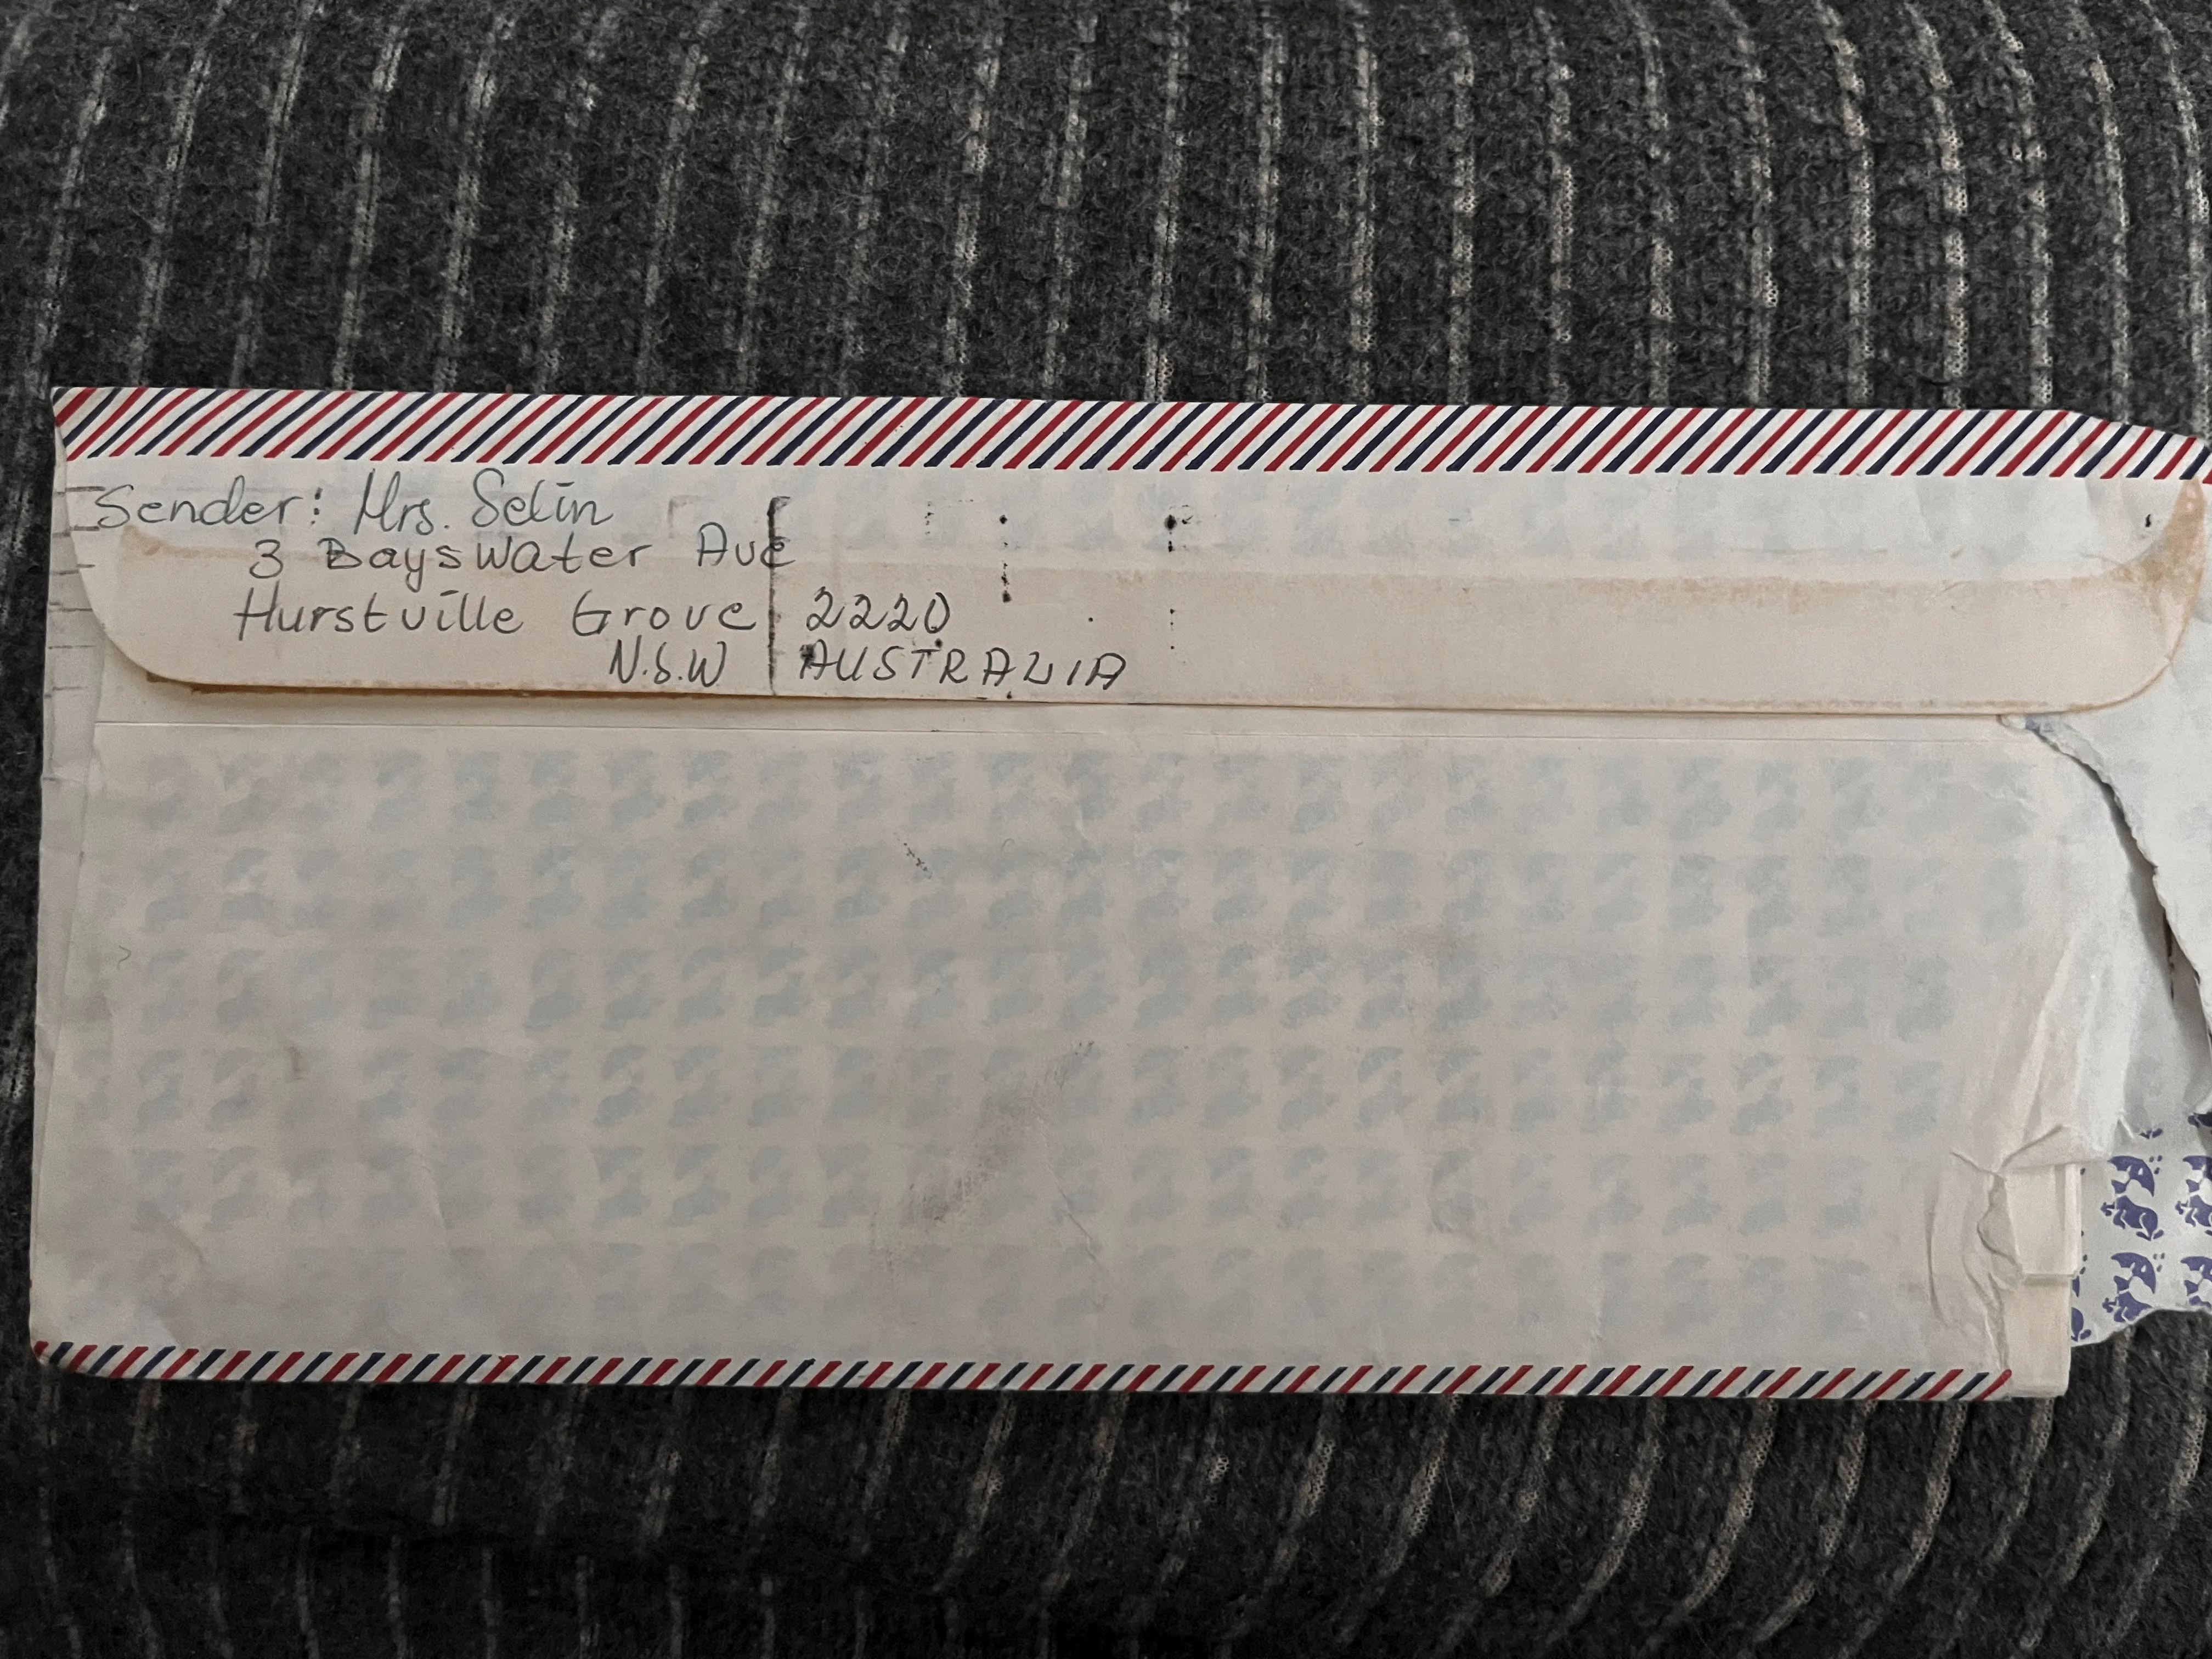 Sender: Mrs. Selin
3 Bayswater Ave
Hurstville Grove 2220
N.S.W AUSTRALIA